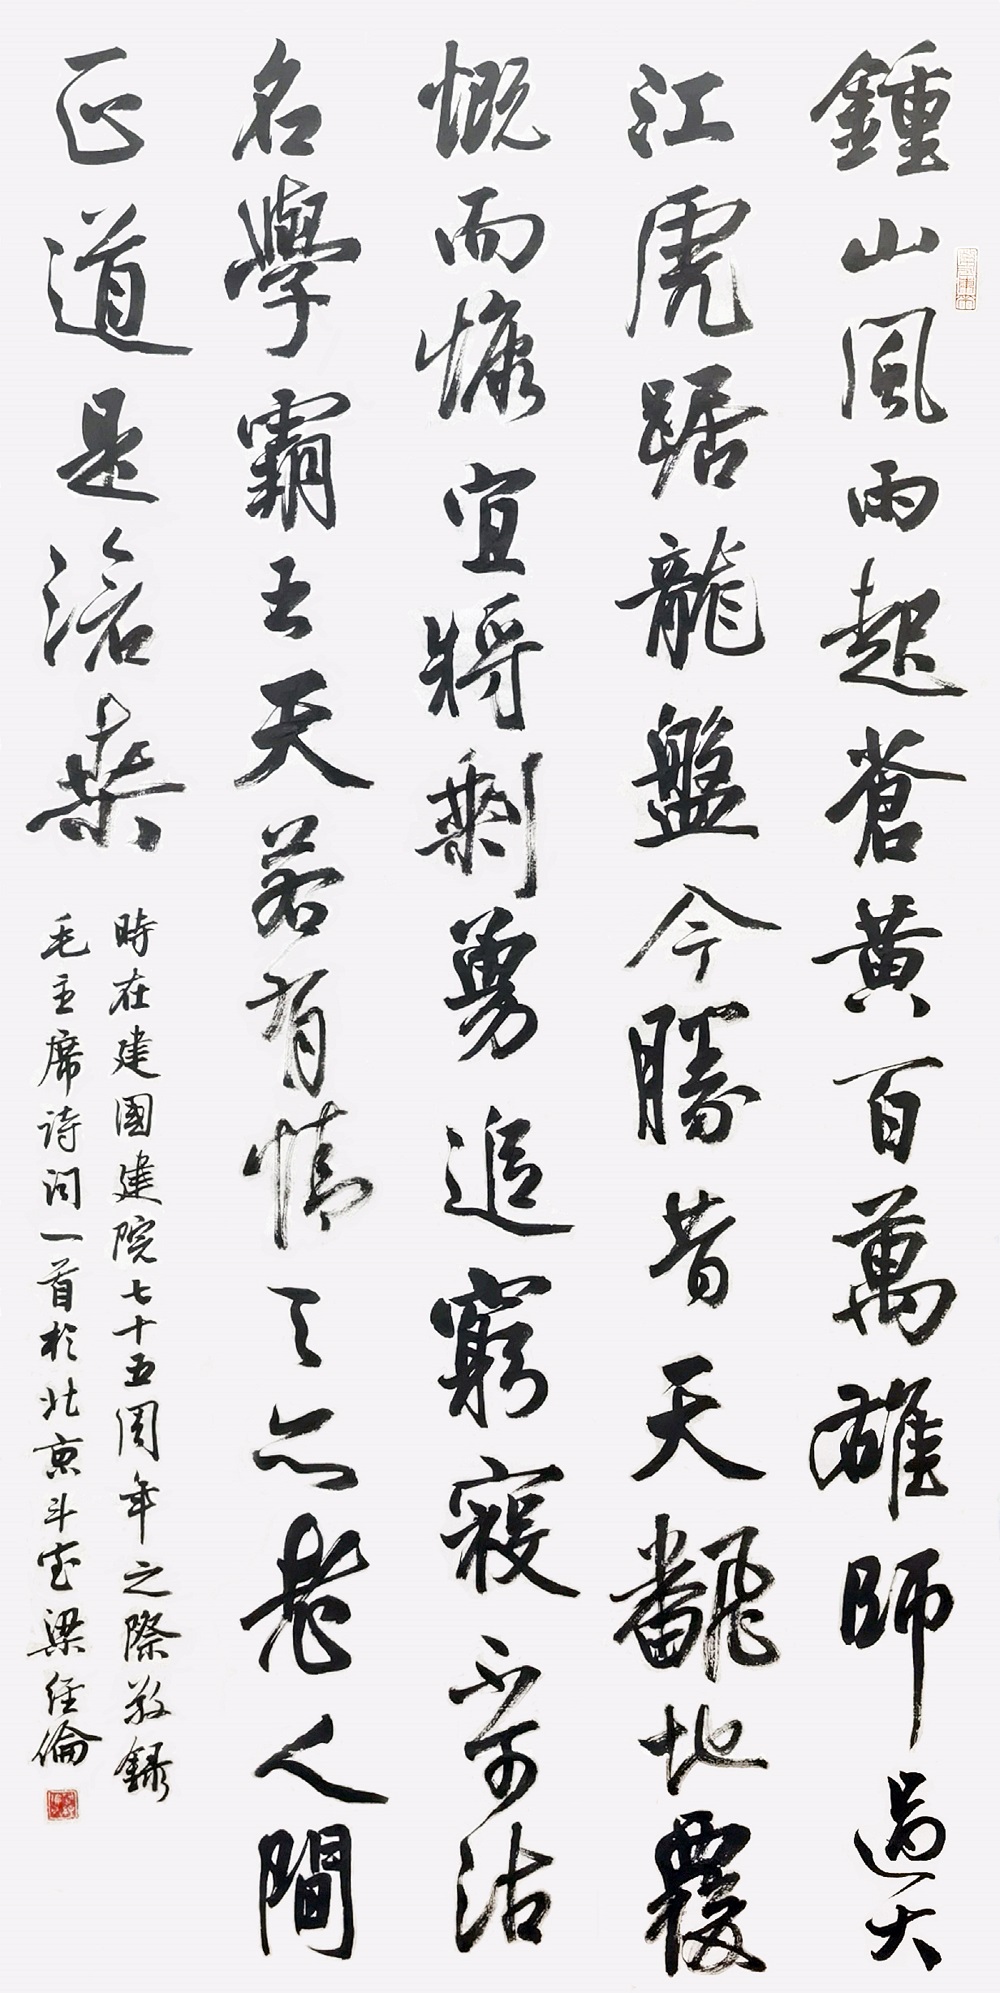 鍾山風雨起蒼黃百萬雄師過大
江虎踞龍盤今勝昔天翻地覆
慨而慷宜將剩勇追窮寇不可沽
名學霸王天若有情天亦老人間
正道是滄桑
時在建國建院七十五周年之際敬錄
毛主席诗词一首於北京斗室梁經倫